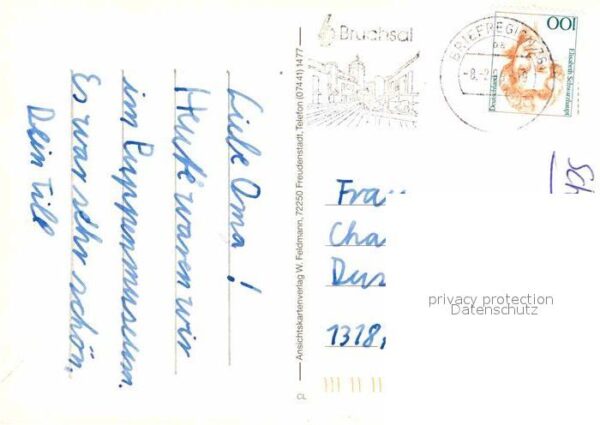 Liebe Oma!
Heute waren wir
im Puppenmuseum.
Es war sehr schön,
Dein Til
Ansichtskartenverlag W. Feldmann, 72250 Freudenstadt, Telefon (07441) 1477
CL
Bruchsal
BRIEFREGION
100
Elisabeth Schwarzhaupt
Deutschland
Sch
Fra
Cha
Dus
1318,
privacy protection
Datenschutz